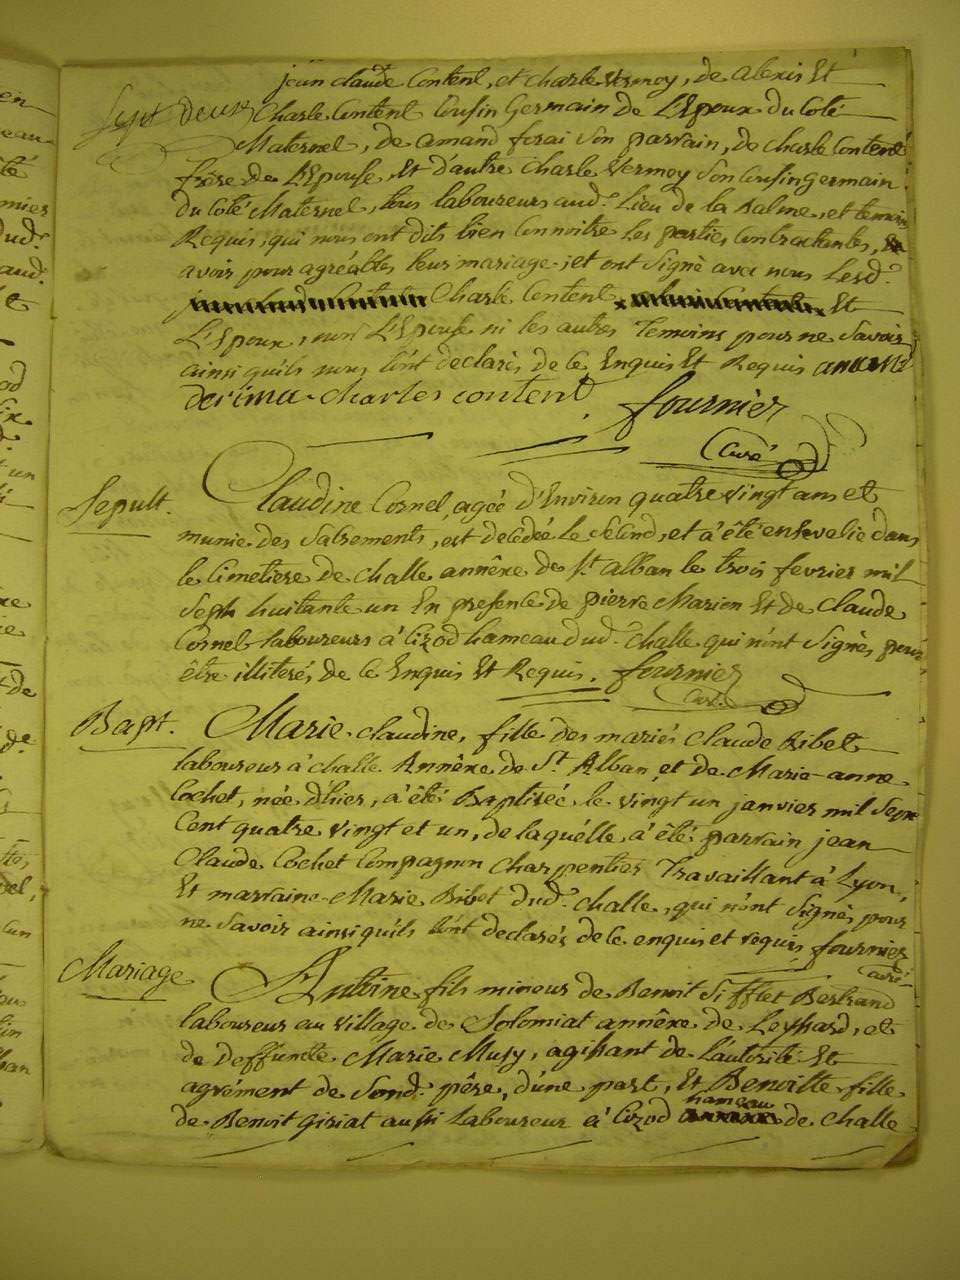 jean claude Content, et charle Vermoy, de alexis Et
Sept deux
Charle Content Cousin Germain de L'Epoux du Coté
Maternel, de amand forai Son parrain, de charle Content
frère de L'Epouse, Et d'autre Charle Vermoy Son Cousin Germain
du Coté Maternel, tous laboureurs aud.t Lieu de la Balme, et temoins
Requis, qui nous ont dits bien Connoitre Les parties Contractantes, Et
avoir pour agréables leurs mariage; et ont Signé avec nous Lesd.
Charle Content Et
L'Epoux, non L'Epouse ni les autres Temoins pour ne Savoir
ainsi qu'ils nous l'ont declarés de ce Enquis Et Requis
charles contenT
fournier
Curé
Sepult.
Claudine Cornel, agée d'Environ quatre Vingt ans et
munie des Sacrements, est decedée Le Second, et a été ensevelie dans
le Cimetiere de Challe annêxe de S.t alban le trois fevrier mil
Sept huitante un En presence de pierre Marion Et de Claude
Cornel laboureurs à Cizod hameau dud. Challe qui n'ont Signés pour
être illiterés, de ce Enquis Et Requis. fournier
Curé
Bapt.
Marie Claudine, fille des mariés Claude Ribet
laboureur à Challe Annêxe de S.t Alban, et de Marie-anne
Cochet, née d'hier, a été Baptisée le vingt un janvier mil Sept
Cent quatre vingt et un, de laquélle a été parrain jean
Claude Cochet Compagnon Charpentier Travaillant à Lyon,
Et marraine Marie Ribet dud. Challe, qui n'ont Signés pour
ne Savoir ainsi qu'ils l'ont declarés de ce enquis et requis fournier
curé
Mariage
Antoine fils mineur de Benoit Sifflet Bertrand
laboureur au Village de Solomiat annêxe de Leyssard, et
de deffuncte Marie Musy, agissant de l'autorité Et
agrément de Sond. pêre, d'une part, Et Benoitte fille
hameau
de Benoit Girial aussi Laboureur à Cizod de Challe